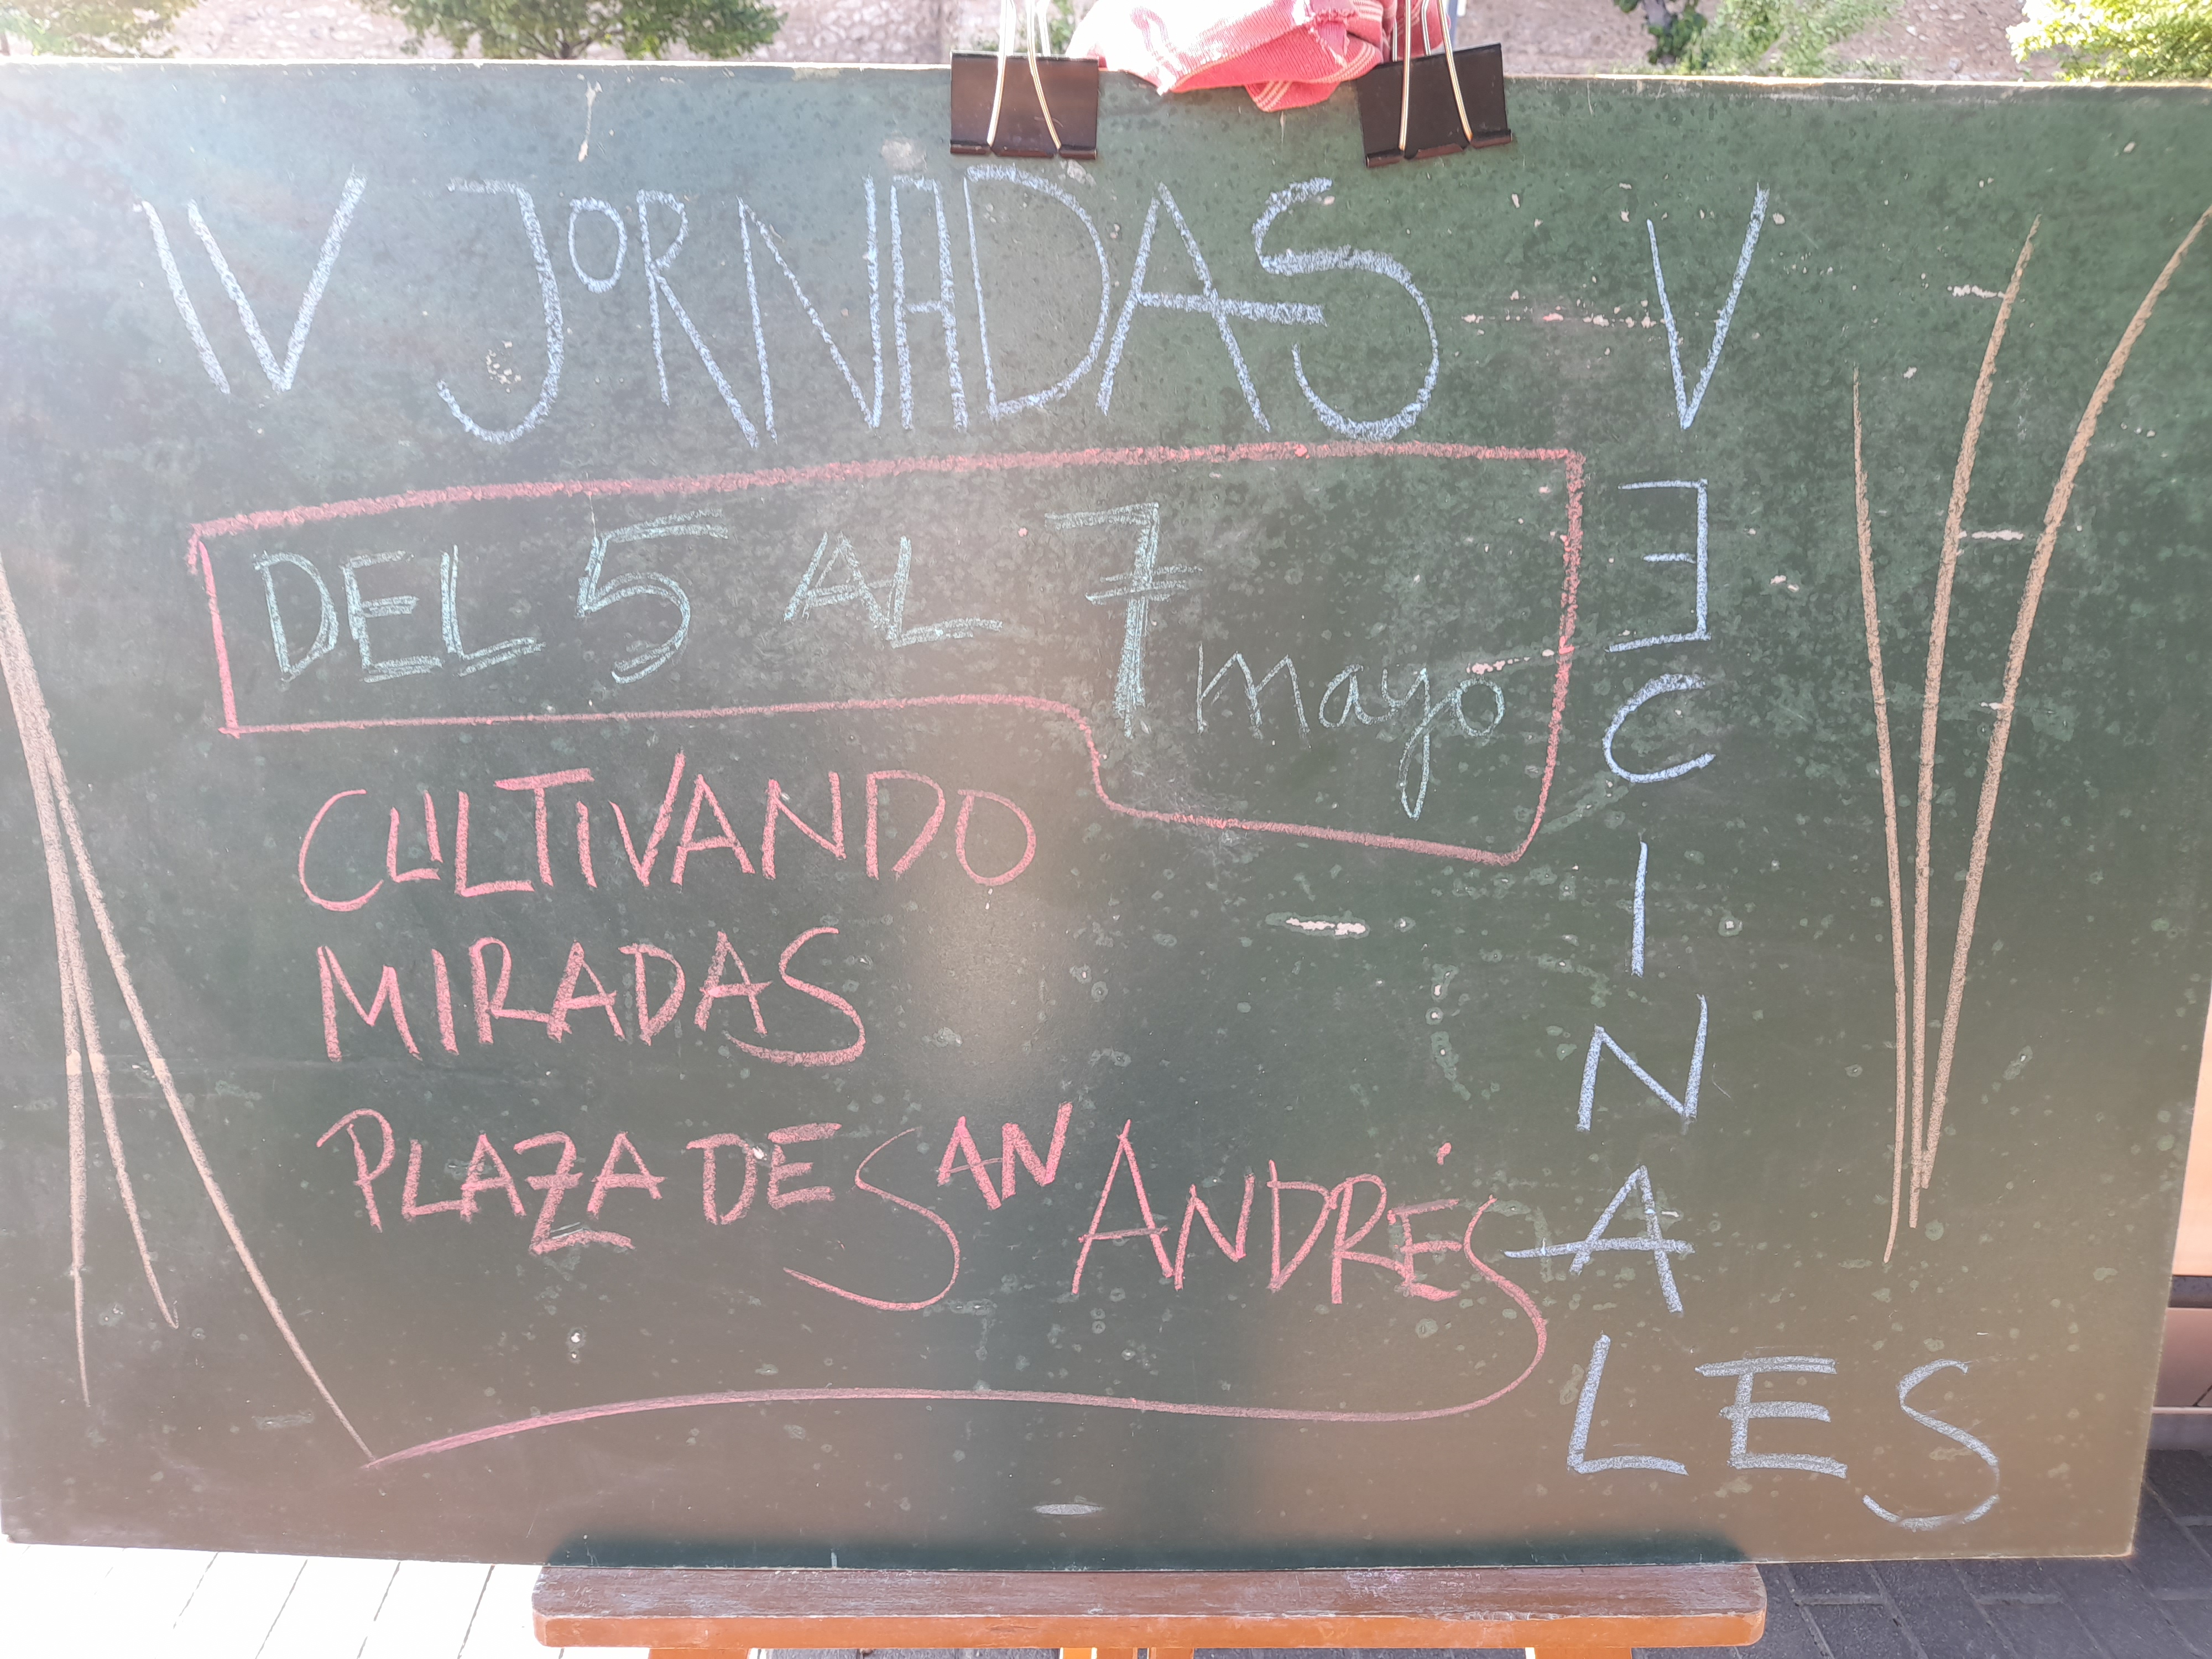 IV JORNADAS
VECINALES
DEL 5 AL 7 mayo
CULTIVANDO
MIRADAS
PLAZA DE SAN ANDRÉS